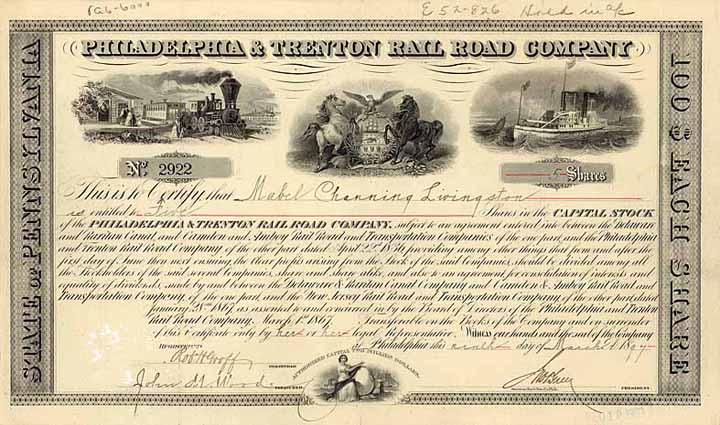 E52-826 Hold in a/c
PHILADELPHIA & TRENTON RAIL ROAD COMPANY
STATE OF PENNSYLVANIA
100 $ EACH SHARE
No. 2922
5 Shares
This is to Certify that Mabel Channing Livingston
is entitled to Five Shares in the CAPITAL STOCK
of the PHILADELPHIA & TRENTON RAIL ROAD COMPANY, subject to an agreement entered into between the Delaware
and Raritan Canal, and Camden and Amboy Rail Road and Transportation Companies, of the one part, and the Philadelphia
and Trenton Rail Road Company, of the other part, dated April 22nd 1836, providing among other things that from and after the
first day of June then next ensuing, the clear profits arising from the Stock of the said Companies, should be divided among all
the Stockholders of the said several Companies, share and share alike, and also to an agreement for consolidation of interests and
equality of dividends, made by and between the Delaware & Raritan Canal Company and Camden & Amboy Rail Road and
Transportation Company, of the one part, and the New Jersey Rail Road and Transportation Company, of the other part, dated
January 1867, as assented to and concurred in by the Board of Directors of the Philadelphia and Trenton
Rail Road Company, March 1867. Transferable on the Books of the Company and on surrender
of this Certificate only by her or her legal Representative. Witness our hands and the seal of the Company
at Philadelphia this ninth day of March
AUTHORIZED CAPITAL TWO MILLION DOLLARS.
REGISTERED
John M. Wood
TREASURER
PRESIDENT